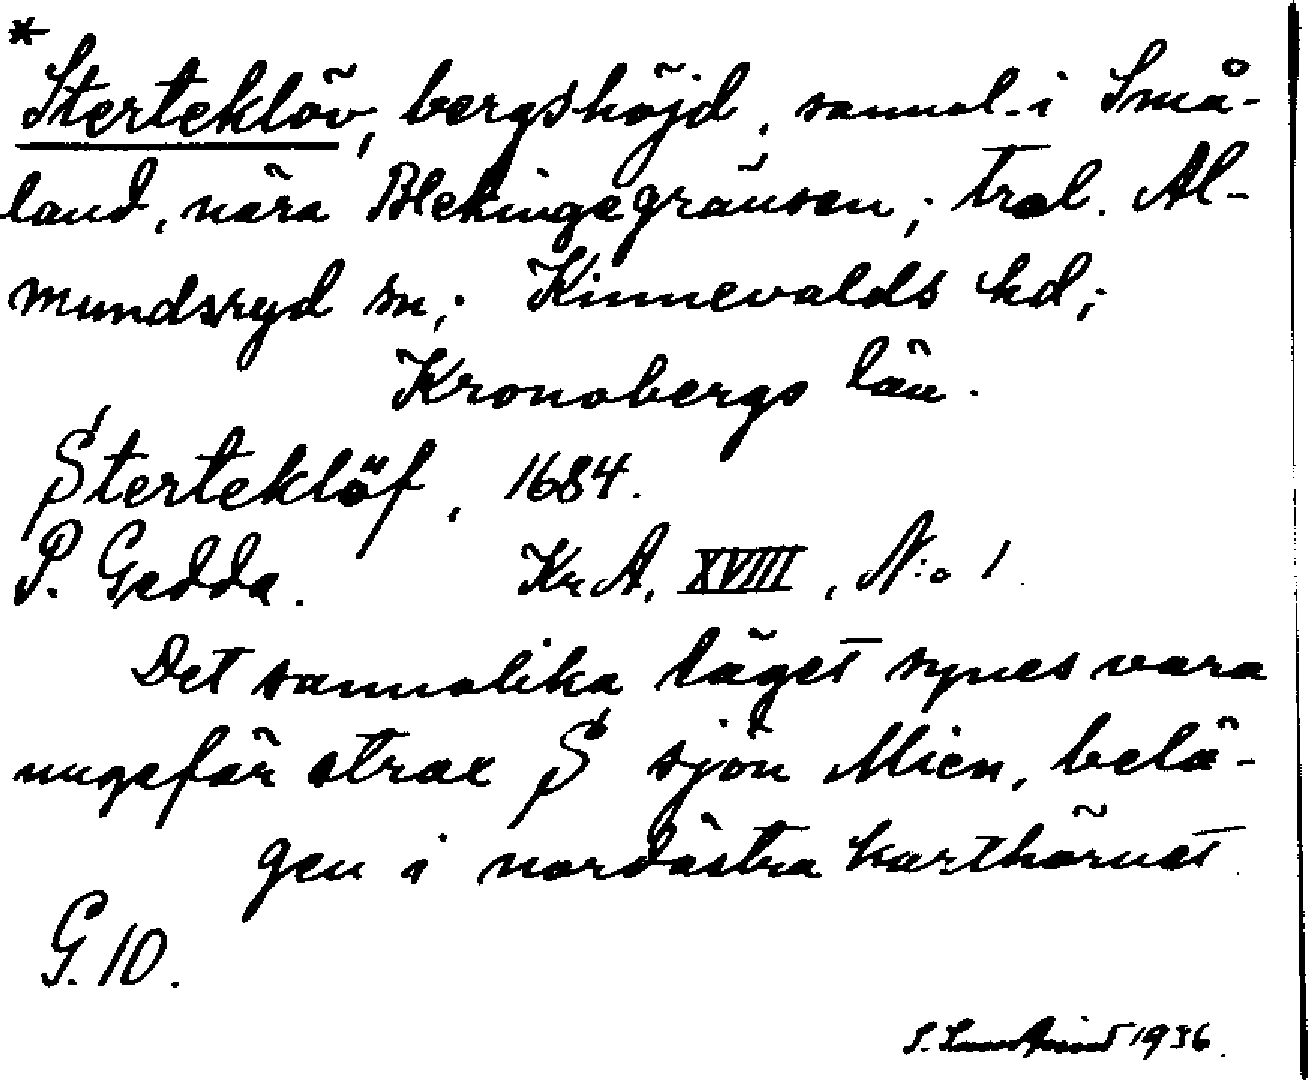 *
Sterteklöv, bergshöjd, sannol. i Små-
land, nära Blekingegränsen; trol. Al-
mundsryd sn; Kinnevalds hd;
Kronobergs län.
Sterteklöf, 1684.
P. Gedda. Kr. A. XVIII, N:o 1
Det sannolika läget synes vara
ungefär strax S sjön Mien, belä-
gen i nordöstra karthörnet.
G. 10.
S. 1936.